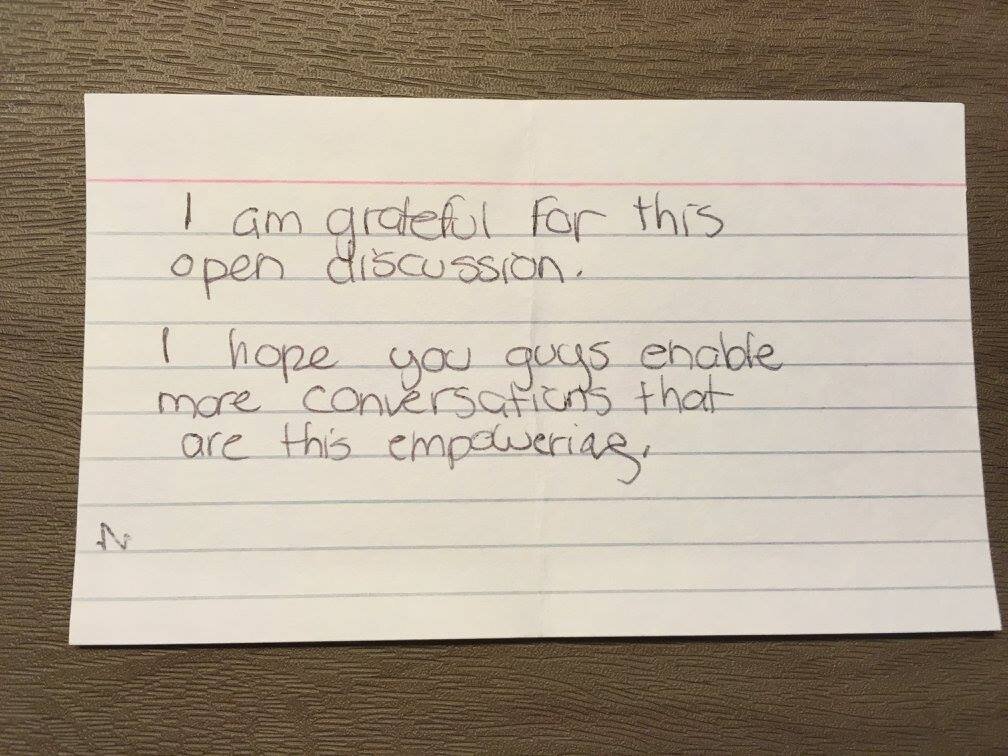 I am grateful for this
open discussion.
I hope you guys enable
more conversations that
are this empowering.
N